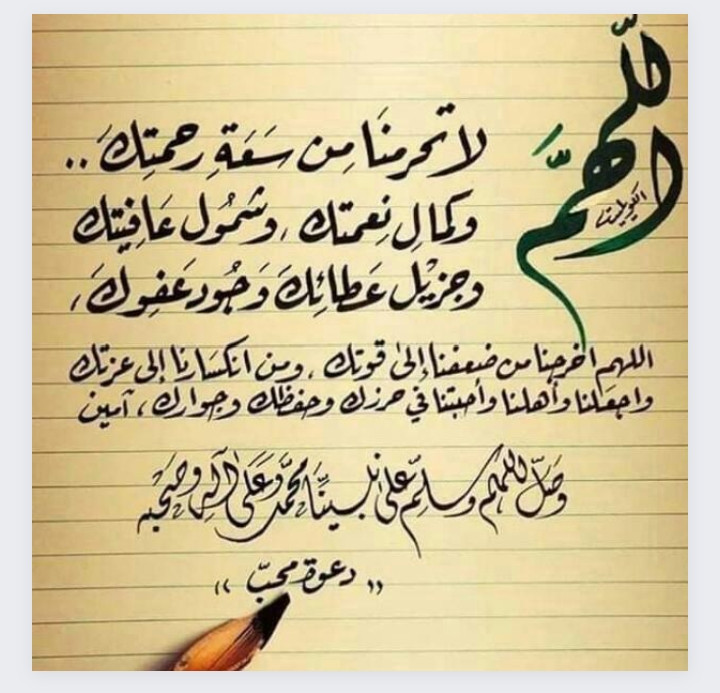 اللّهمّ
لا تحرمنَا مِن سَعَةِ رحمتِكَ ..
وكمالِ نِعمتك ، وشمُول عَافِيتك
وجزيْل عَطائِكَ وَجُود عَفوِكَ ،
اللهم أخرجنا من ضعفنا إلىٰ قوتك ، ومن انكسَارنا إلى عزتك
واجعَلنا وأهلنا وأحبتنا في حرزك وحفظك وجوارك ، آمين
وَصَلِّ اللهم وسلِّم على نبينَا محمَّد وَعَلى آلِه وصَحْبِه
« دعوة محبّ »